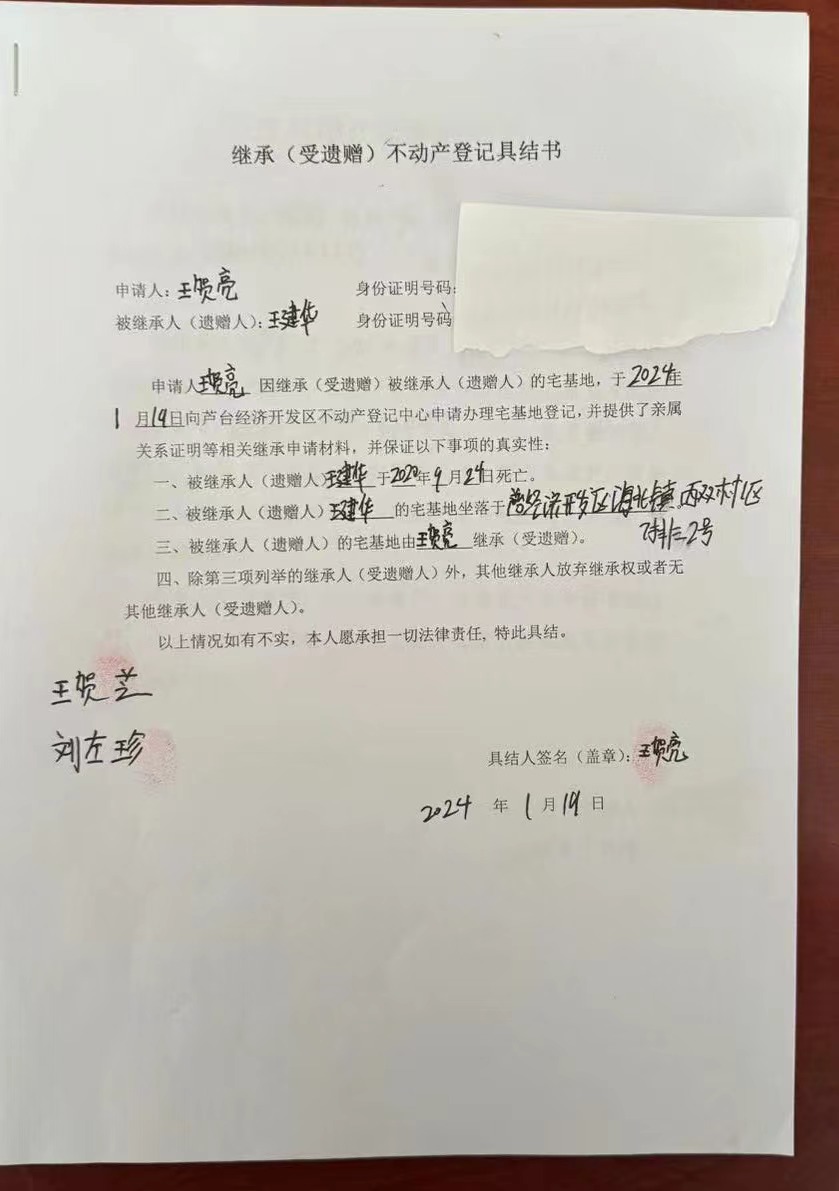 继承（受遗赠）不动产登记具结书
申请人：王贺亮 身份证明号码：
被继承人（遗赠人）：王建华 身份证明号码
申请人王贺亮 因继承（受遗赠）被继承人（遗赠人）的宅基地，于2024年
1月19日向芦台经济开发区不动产登记中心申请办理宅基地登记，并提供了亲属
关系证明等相关继承申请材料，并保证以下事项的真实性：
一、被继承人（遗赠人）王建华于2020年9月24日死亡。
二、被继承人（遗赠人）王建华的宅基地坐落于经济开发区海北镇
2号
三、被继承人（遗赠人）的宅基地由王贺亮继承（受遗赠）。
四、除第三项列举的继承人（受遗赠人）外，其他继承人放弃继承权或者无
其他继承人（受遗赠人）。
以上情况如有不实，本人愿承担一切法律责任，特此具结。
王贺芝
刘左珍
具结人签名（盖章）：王贺亮
2024 年 1 月 19 日